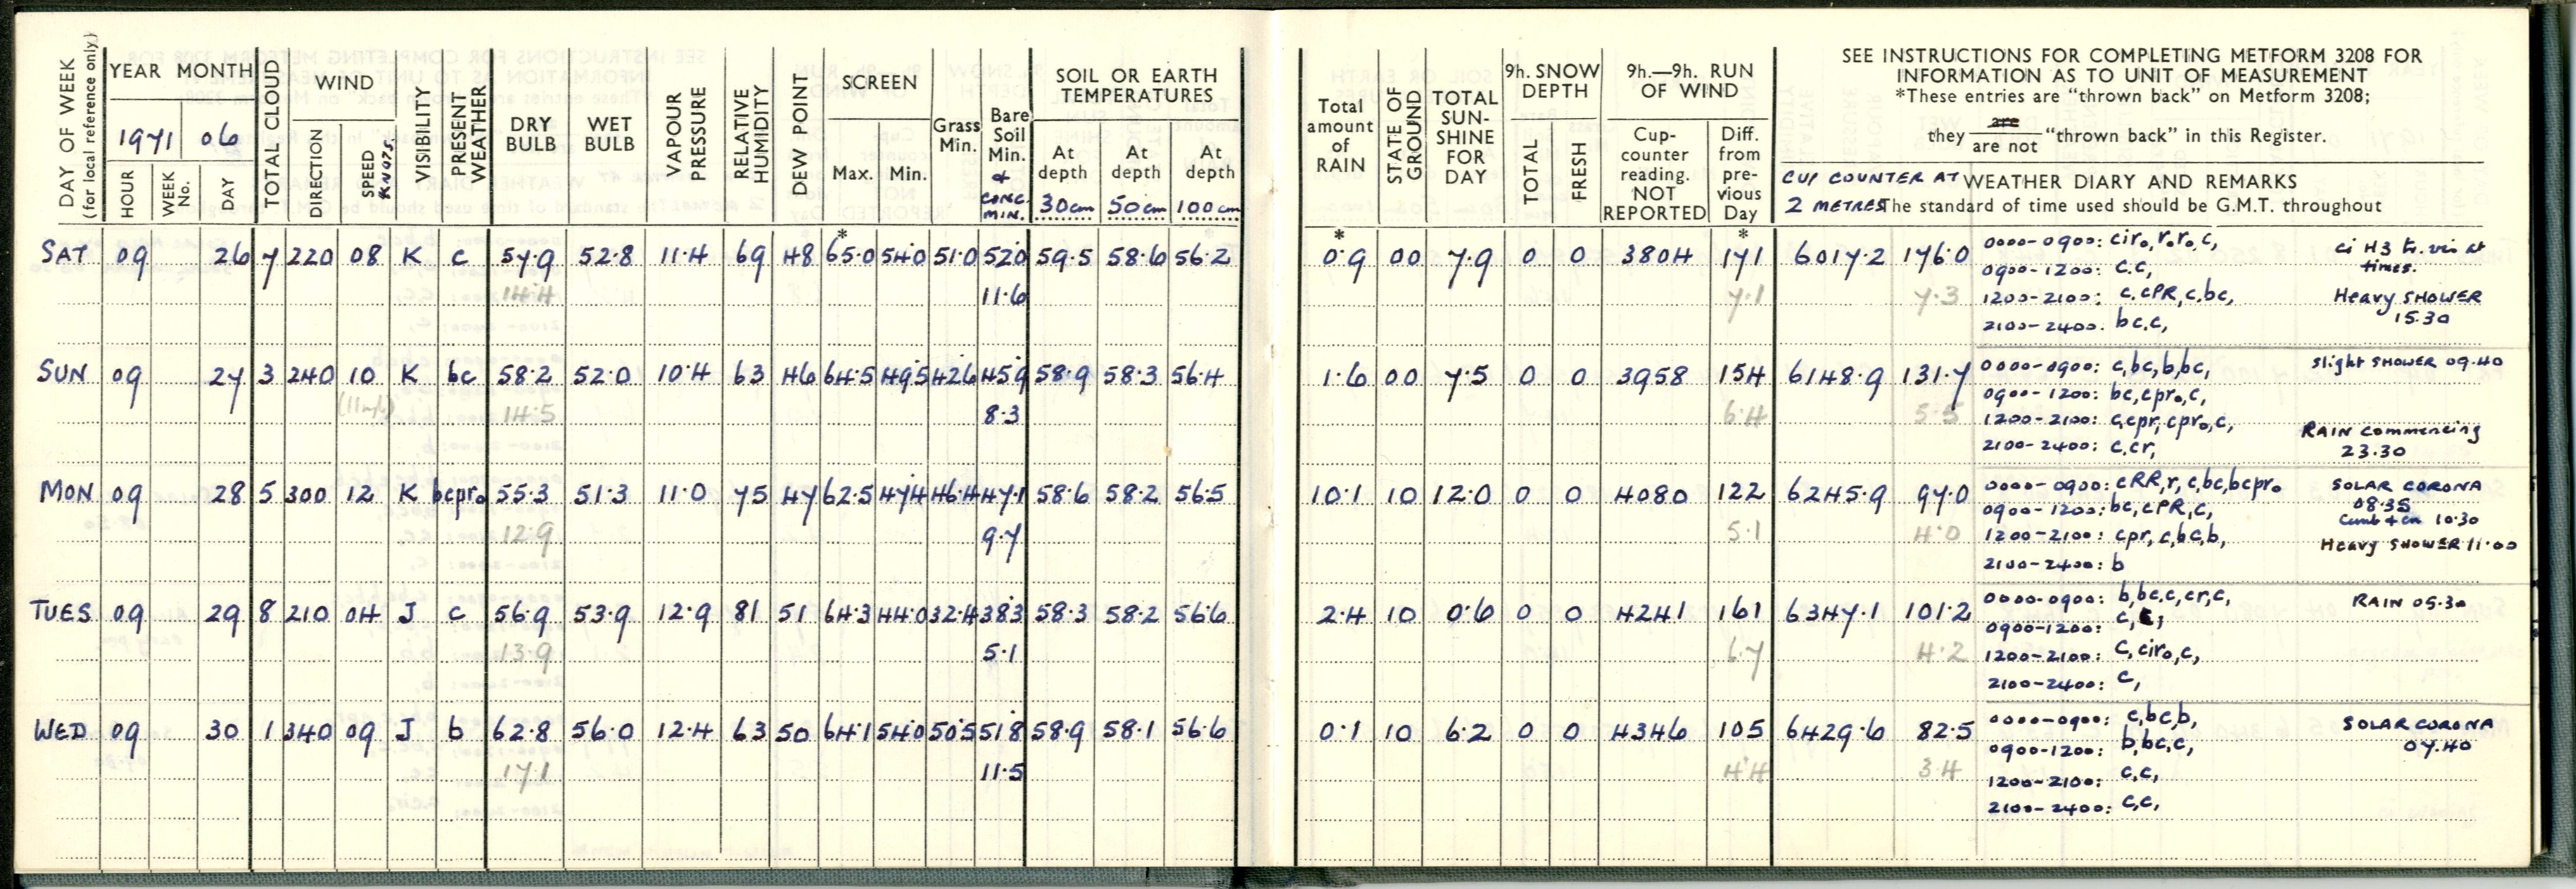 DAY OF WEEK (for local reference only)
YEAR MONTH
1971 06
HOUR WEEK No. DAY
TOTAL CLOUD
WIND
DIRECTION SPEED KNOTS.
VISIBILITY
PRESENT WEATHER
DRY BULB WET BULB
VAPOUR PRESSURE
RELATIVE HUMIDITY
DEW POINT
SCREEN
Max. Min.
Grass Min.
Bare Soil Min. & CONC. MIN.
SOIL OR EARTH TEMPERATURES
At depth 30cm At depth 50cm At depth 100cm
Total amount of RAIN
STATE OF GROUND
TOTAL SUN-SHINE FOR DAY
9h. SNOW DEPTH
TOTAL FRESH
9h.—9h. RUN OF WIND
Cup-counter reading. NOT REPORTED
Diff. from pre-vious Day
SEE INSTRUCTIONS FOR COMPLETING METFORM 3208 FOR
INFORMATION AS TO UNIT OF MEASUREMENT
*These entries are "thrown back" on Metform 3208;
they are / are not "thrown back" in this Register.
CUP COUNTER AT 2 METRES
WEATHER DIARY AND REMARKS
The standard of time used should be G.M.T. throughout
* * *
SAT 09 26 7 220 08 K c 57.9 52.8 11.4 69 48 65.0 54.0 51.0 52.0 59.5 58.6 56.2 0.9 00 7.9 0 0 3804 171 6017.2 176.0 0000-0900: ciro,r.ro,c, Ci H3 tr. vis at times.
0900-1200: c.c,
14.4 11.6 7.1 7.3 1200-2100: c.cPR,c,bc, Heavy SHOWER 15.30
2100-2400: bc.c,
SUN 09 27 3 240 10 K bc 58.2 52.0 10.4 63 46 64.5 49.5 42.6 45.9 58.9 58.3 56.4 1.6 00 7.5 0 0 3958 154 6148.9 131.7 0000-0900: c,bc,b,bc, Slight SHOWER 09.40
0900-1200: bc,cpro,c,
14.5 8.3 6.4 5.5 1200-2100: c,cpr,cpro,c,
2100-2400: c.cr, RAIN Commencing 23.30
MON 09 28 5 300 12 K bcpro 55.3 51.3 11.0 75 47 62.5 47.4 46.4 47.1 58.6 58.2 56.5 10.1 10 12.0 0 0 4080 122 6245.9 97.0 0000-0900: cRR,r,c,bc,bcpro SOLAR CORONA 08.35
0900-1200: bc,cPR,c, 10.30
12.9 9.7 5.1 4.0 1200-2100: cpr,c,bc,b, Heavy SHOWER 11.00
2100-2400: b
TUES 09 29 8 210 04 J c 56.9 53.9 12.9 81 51 64.3 44.0 32.4 38.3 58.3 58.2 56.6 2.4 10 0.6 0 0 4241 161 6347.1 101.2 0000-0900: b,bc,c,cr,c, RAIN 05.30
0900-1200: c,c,
13.9 5.1 6.7 4.2 1200-2100: c,ciro,c,
2100-2400: c,
WED 09 30 1 340 09 J b 62.8 56.0 12.4 63 50 64.1 54.0 50.5 51.8 58.9 58.1 56.6 0.1 10 6.2 0 0 4346 105 6429.6 82.5 0000-0900: c,bc,b, SOLAR CORONA 07.40
0900-1200: b,bc,c,
17.1 11.5 4.4 3.4 1200-2100: c,c,
2100-2400: c,c,